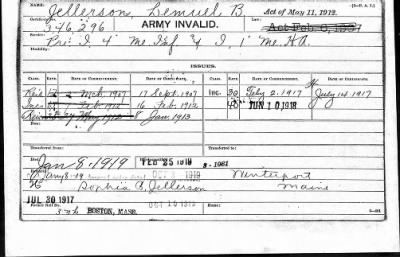 Jellerson, Lemuel B.
Act of May 11, 1912.
346,296
ARMY INVALID.
Act Feb. 6, 1907
Pri. I. 4" Me. Inf & I, 1" Me. H.A.
ISSUES.
CLASS. RATE. DATE OF COMMENCEMENT. DATE OF CERTIFICATE. CLASS. RATE. DATE OF COMMENCEMENT. DATE OF CERTIFICATE.
Reis 12 2 Mch 1907 17 Sept. 1907 Inc. 30 Feby 2. 1917 July 14 1917
Inc 1 Feb 1912 16 Feb 1912 JUN 10 1918
Reis 27 May 1912 8 Jan 1913
Transferred from
Transferred to
Jan 8. 1919 FEB 25 1919 3-1081
1919 Winterport
Sophia C. Jellerson Maine
JUL 30 1917
BOSTON, MASS.